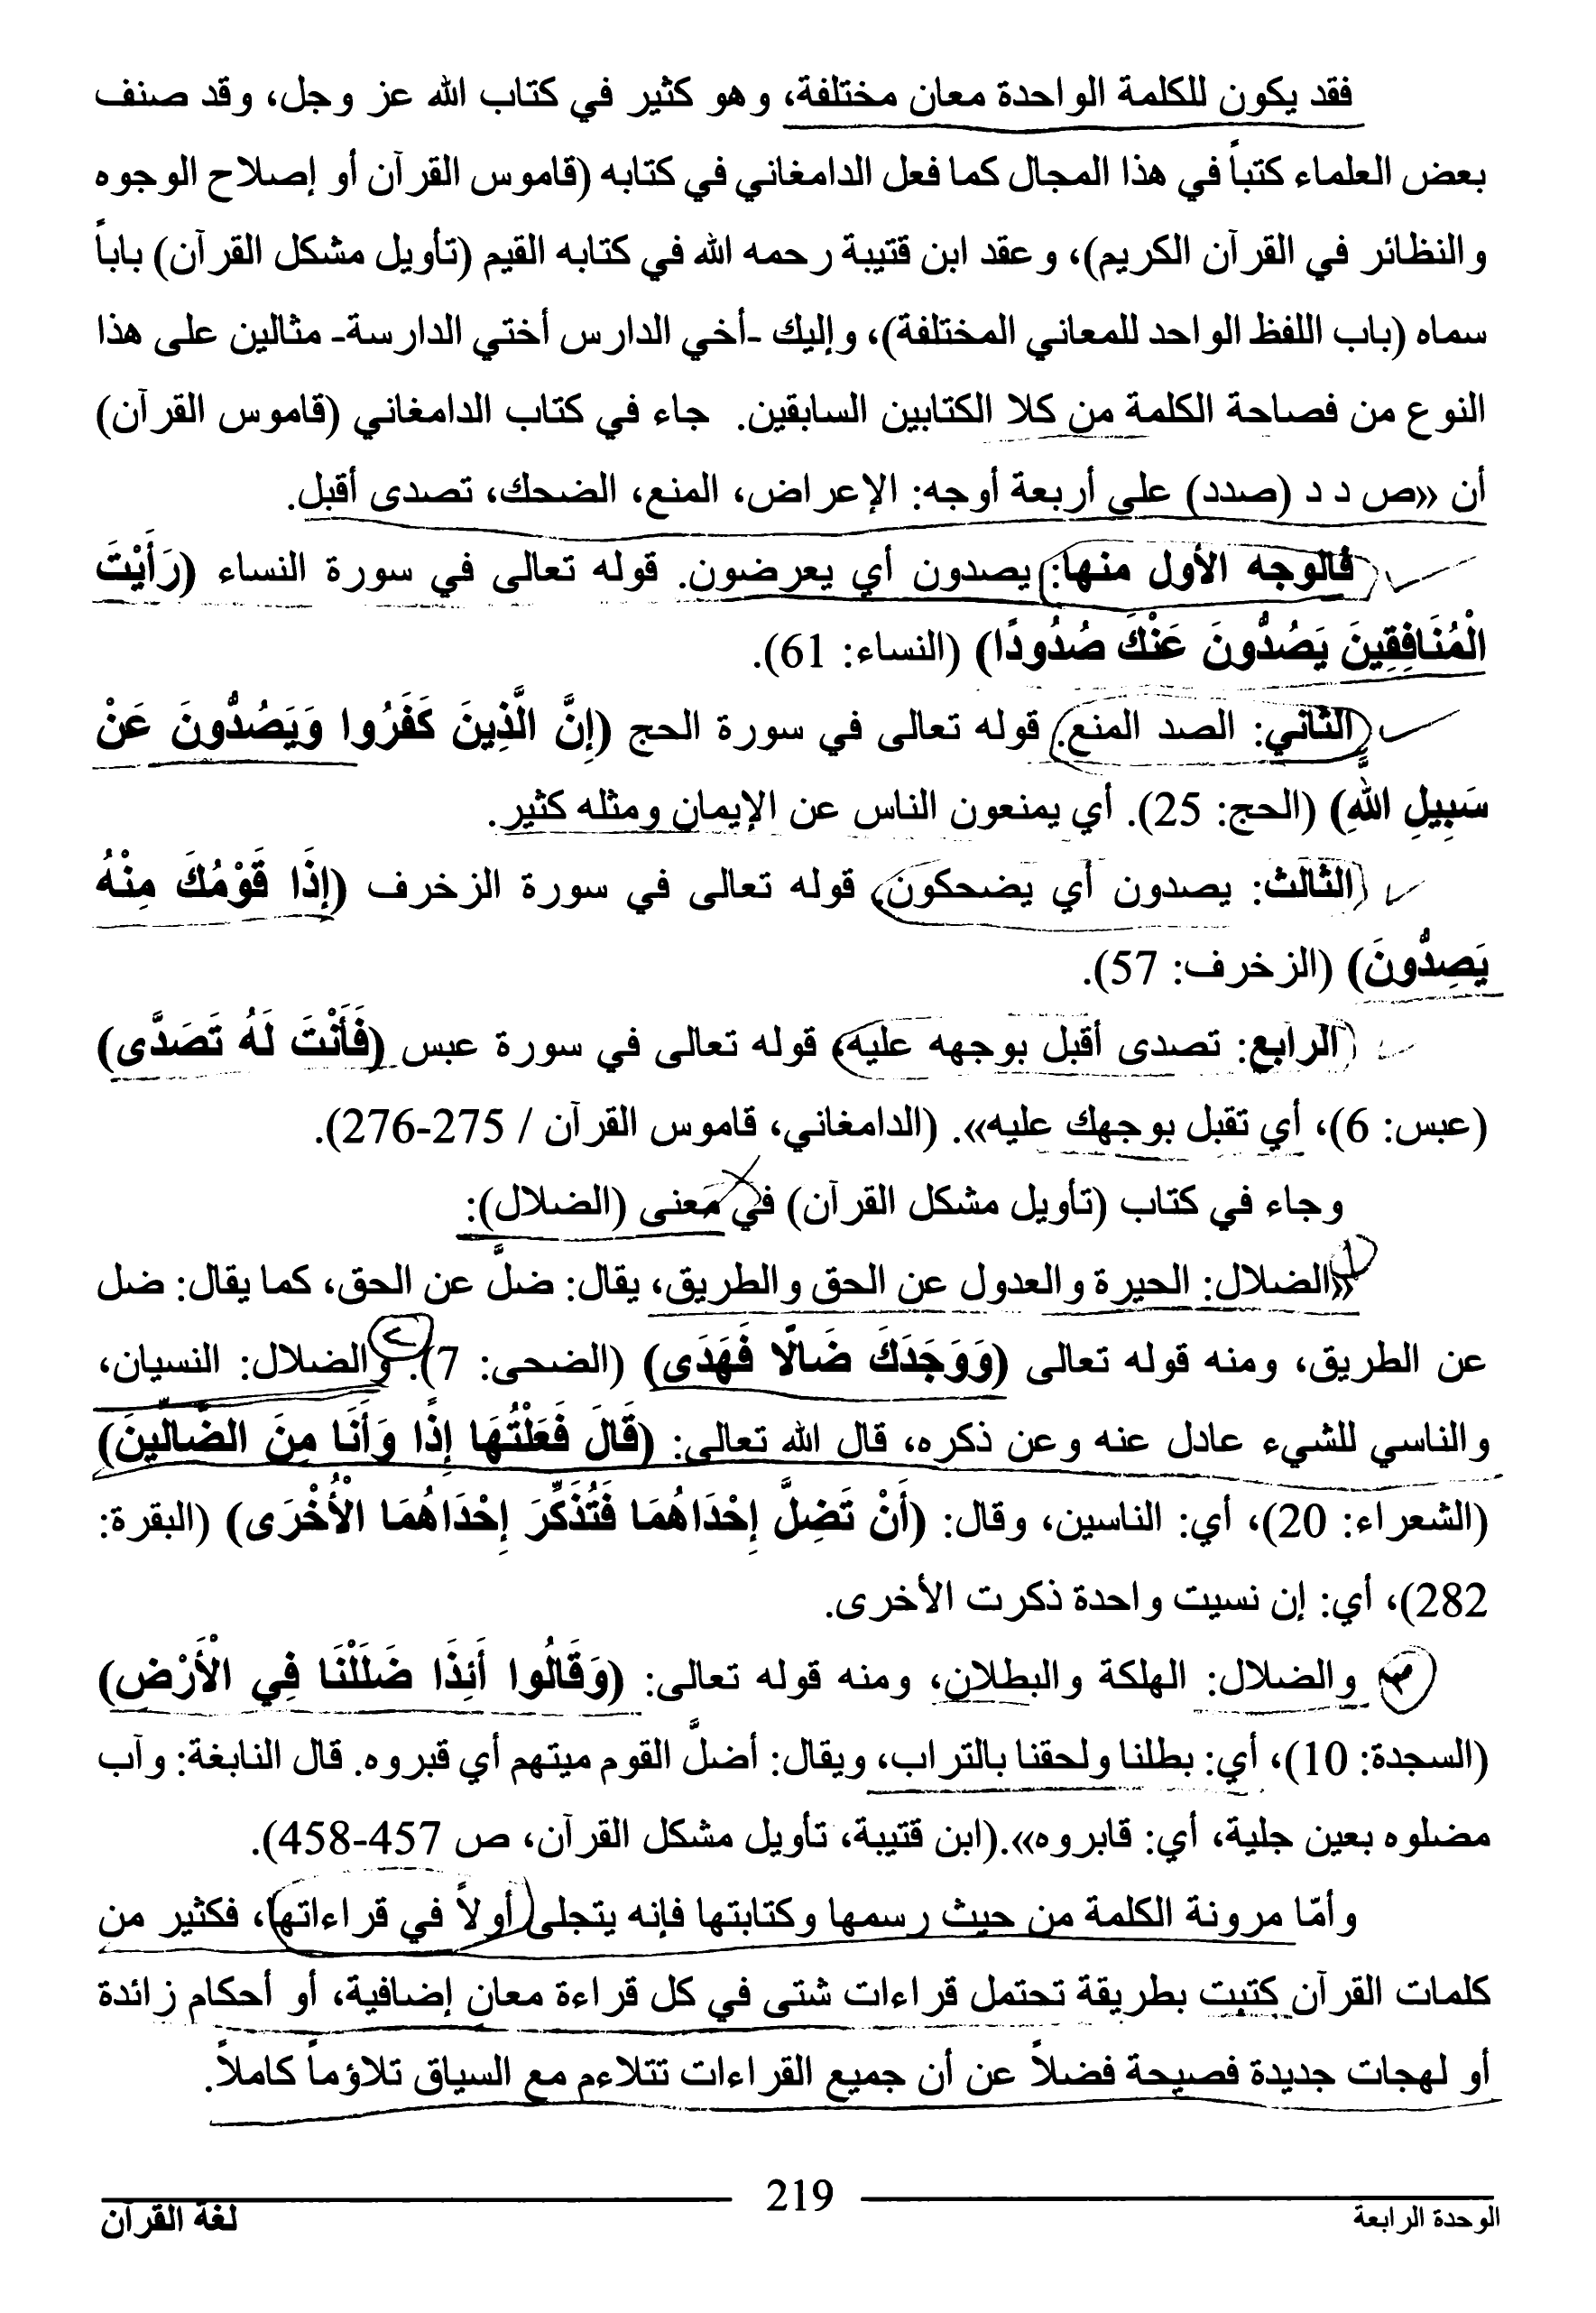 فقد يكون للكلمة الواحدة معان مختلفة، وهو كثير في كتاب الله عز وجل، وقد صنف
بعض العلماء كتباً في هذا المجال كما فعل الدامغاني في كتابه (قاموس القرآن أو إصلاح الوجوه
والنظائر في القرآن الكريم)، وعقد ابن قتيبة رحمه الله في كتابه القيم (تأويل مشكل القرآن) باباً
سماه (باب اللفظ الواحد للمعاني المختلفة)، وإليك -أخي الدارس أختي الدارسة- مثالين على هذا
النوع من فصاحة الكلمة من كلا الكتابين السابقين. جاء في كتاب الدامغاني (قاموس القرآن)
أن «ص د د (صدد) على أربعة أوجه: الإعراض، المنع، الضحك، تصدى أقبل.
فالوجه الأول منها: يصدون أي يعرضون. قوله تعالى في سورة النساء (رَأَيْتَ
الْمُنَافِقِينَ يَصُدُّونَ عَنْكَ صُدُودًا) (النساء: 61).
الثاني: الصد المنع. قوله تعالى في سورة الحج (إِنَّ الَّذِينَ كَفَرُوا وَيَصُدُّونَ عَنْ
سَبِيلِ اللَّهِ) (الحج: 25). أي يمنعون الناس عن الإيمان ومثله كثير.
الثالث: يصدون أي يضحكون، قوله تعالى في سورة الزخرف (إِذَا قَوْمُكَ مِنْهُ
يَصِدُّونَ) (الزخرف: 57).
الرابع: تصدى أقبل بوجهه عليه، قوله تعالى في سورة عبس (فَأَنْتَ لَهُ تَصَدَّى)
(عبس: 6)، أي تقبل بوجهك عليه». (الدامغاني، قاموس القرآن / 275-276).
وجاء في كتاب (تأويل مشكل القرآن) في معنى (الضلال):
«الضلال: الحيرة والعدول عن الحق والطريق، يقال: ضلَّ عن الحق، كما يقال: ضل
عن الطريق، ومنه قوله تعالى (وَوَجَدَكَ ضَالًّا فَهَدَى) (الضحى: 7). والضلال: النسيان،
والناسي للشيء عادل عنه وعن ذكره، قال الله تعالى: (قَالَ فَعَلْتُهَا إِذًا وَأَنَا مِنَ الضَّالِّينَ)
(الشعراء: 20)، أي: الناسين، وقال: (أَنْ تَضِلَّ إِحْدَاهُمَا فَتُذَكِّرَ إِحْدَاهُمَا الْأُخْرَى) (البقرة:
282)، أي: إن نسيت واحدة ذكرت الأخرى.
٣ والضلال: الهلكة والبطلان، ومنه قوله تعالى: (وَقَالُوا أَئِذَا ضَلَلْنَا فِي الْأَرْضِ)
(السجدة: 10)، أي: بطلنا ولحقنا بالتراب، ويقال: أضلَّ القوم ميتهم أي قبروه. قال النابغة: وآب
مضلوه بعين جلية، أي: قابروه».(ابن قتيبة، تأويل مشكل القرآن، ص 457-458).
وأمّا مرونة الكلمة من حيث رسمها وكتابتها فإنه يتجلى أولاً في قراءاتها، فكثير من
كلمات القرآن كتبت بطريقة تحتمل قراءات شتى في كل قراءة معان إضافية، أو أحكام زائدة
أو لهجات جديدة فصيحة فضلاً عن أن جميع القراءات تتلاءم مع السياق تلاؤماً كاملاً.
219
الوحدة الرابعة
لغة القرآن